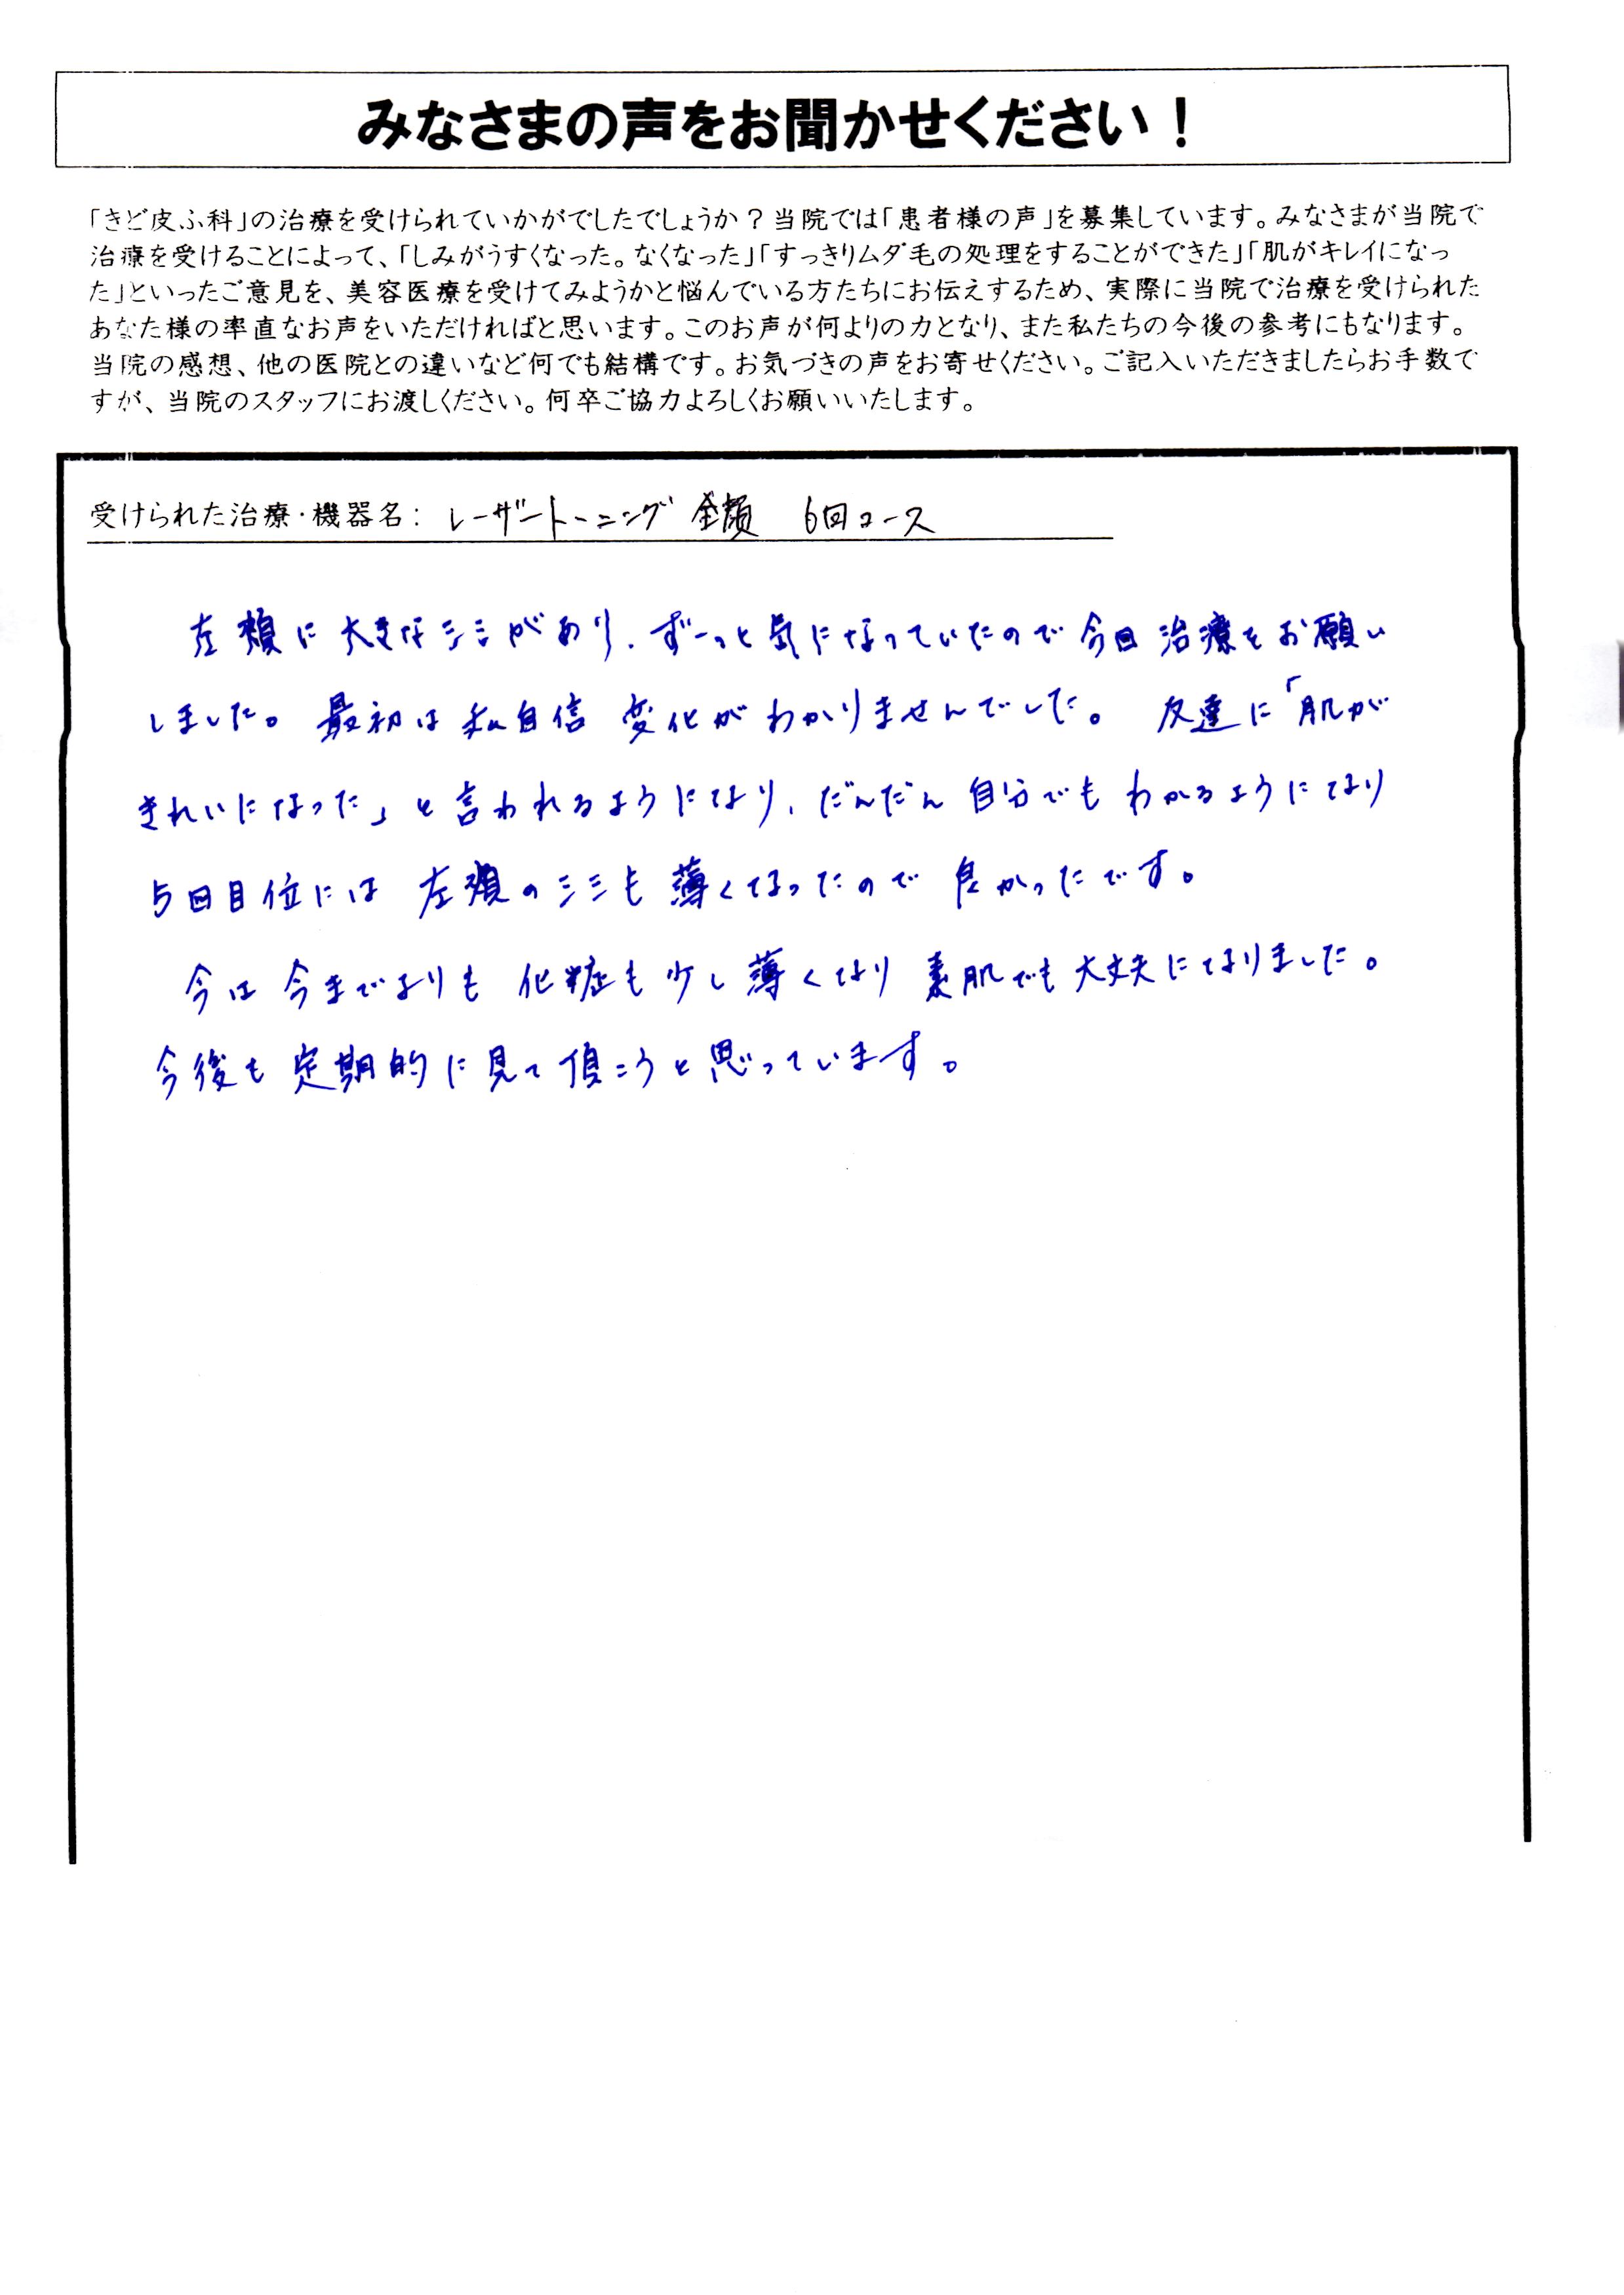 みなさまの声をお聞かせください！
「きど皮ふ科」の治療を受けられていかがでしたでしょうか？当院では「患者様の声」を募集しています。みなさまが当院で
治療を受けることによって、「しみがうすくなった。なくなった」「すっきりムダ毛の処理をすることができた」「肌がキレイになっ
た」といったご意見を、美容医療を受けてみようかと悩んでいる方たちにお伝えするため、実際に当院で治療を受けられた
あなた様の率直なお声をいただければと思います。このお声が何よりの力となり、また私たちの今後の参考にもなります。
当院の感想、他の医院との違いなど何でも結構です。お気づきの声をお寄せください。ご記入いただきましたらお手数で
すが、当院のスタッフにお渡しください。何卒ご協力よろしくお願いいたします。
受けられた治療・機器名： レーザートーニング 全顔 6回コース
左頬に大きなシミがあり、ずーっと気になっていたので今回治療をお願い
しました。最初は私自信 変化がわかりませんでした。 友達に「肌が
きれいになった」と言われるようになり、だんだん自分でもわかるようになり
5回目位には 左頬のシミも薄くなったので 良かったです。
今は今までよりも 化粧も少し薄くなり 素肌でも大丈夫になりました。
今後も定期的に見て頂こうと思っています。